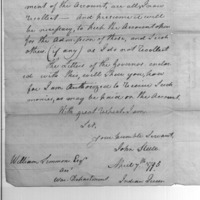 ment of the Account, are all I can
Recollect — and presume it will
be necessary, to keep the Account open
for the Admission of these, and such
other (if any) as I do not recollect
The Letter of the Governor enclosed
with this, will shew you, how
far I am Authorized to Receive such
monies, as may be paid on the Account.
With great respect I am
Sir,
Your humble Servant
John
William Simmons Esqr
War Department
April 7th 1798